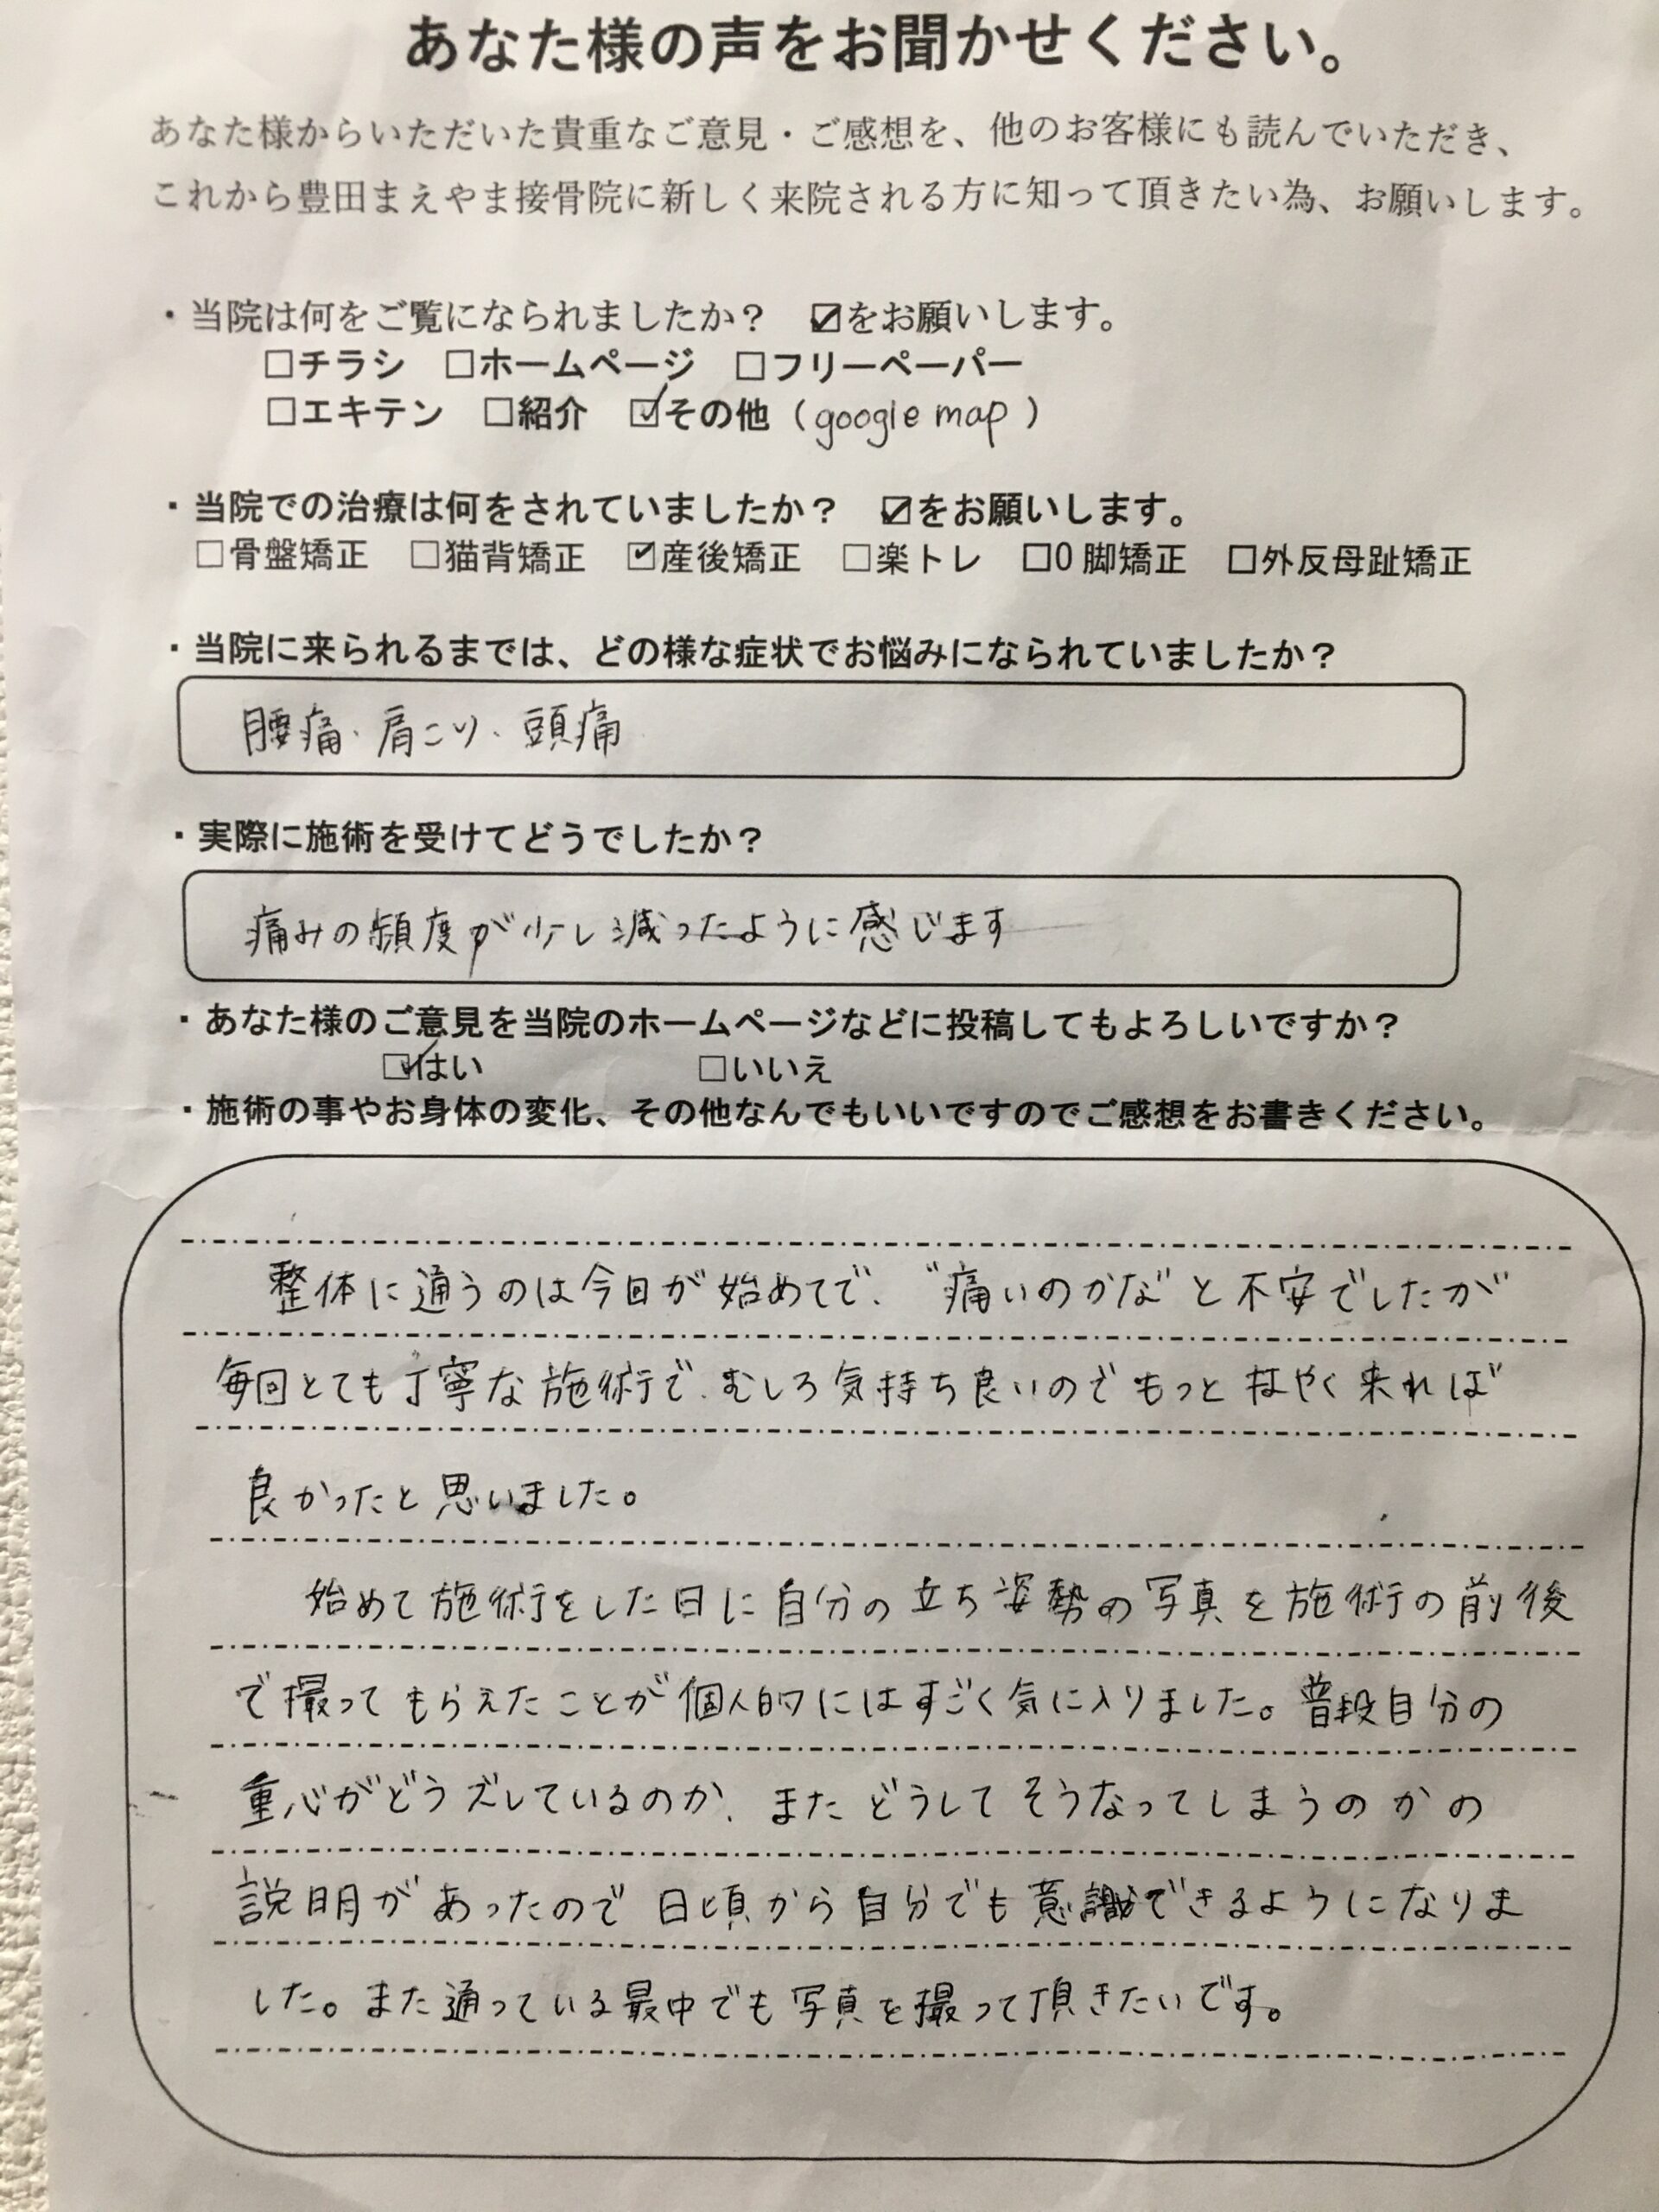 あなた様の声をお聞かせください。
あなた様からいただいた貴重なご意見・ご感想を、他のお客様にも読んでいただき、
これから豊田まえやま接骨院に新しく来院される方に知って頂きたい為、お願いします。
・当院は何をご覧になられましたか？ ☑をお願いします。
□チラシ □ホームページ □フリーペーパー
□エキテン □紹介 ☑その他（google map）
・当院での治療は何をされていましたか？ ☑をお願いします。
□骨盤矯正 □猫背矯正 ☑産後矯正 □楽トレ □O脚矯正 □外反母趾矯正
・当院に来られるまでは、どの様な症状でお悩みになられていましたか？
腰痛、肩こり、頭痛
・実際に施術を受けてどうでしたか？
痛みの頻度が少し減ったように感じます
・あなた様のご意見を当院のホームページなどに投稿してもよろしいですか？
☑はい □いいえ
・施術の事やお身体の変化、その他なんでもいいですのでご感想をお書きください。
整体に通うのは今回が始めてで、“痛いのかな”と不安でしたが
毎回とても丁寧な施術で、むしろ気持ち良いのでもっとはやく来れば
良かったと思いました。
始めて施術をした日に自分の立ち姿勢の写真を施術の前後
で撮ってもらえたことが個人的にはすごく気に入りました。普段自分の
重心がどうズレているのか、またどうしてそうなってしまうのかの
説明があったので日頃から自分でも意識できるようになりま
した。また通っている最中でも写真を撮って頂きたいです。